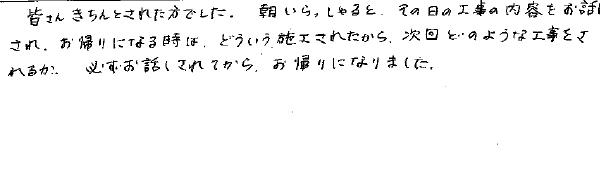 皆さんきちんとされた方でした。朝いらっしゃると、その日の工事の内容をお話
され、お帰りになる時は、どういう施工されたから、次回どのような工事をさ
れるか、必ずお話しされてから、お帰りになりました。